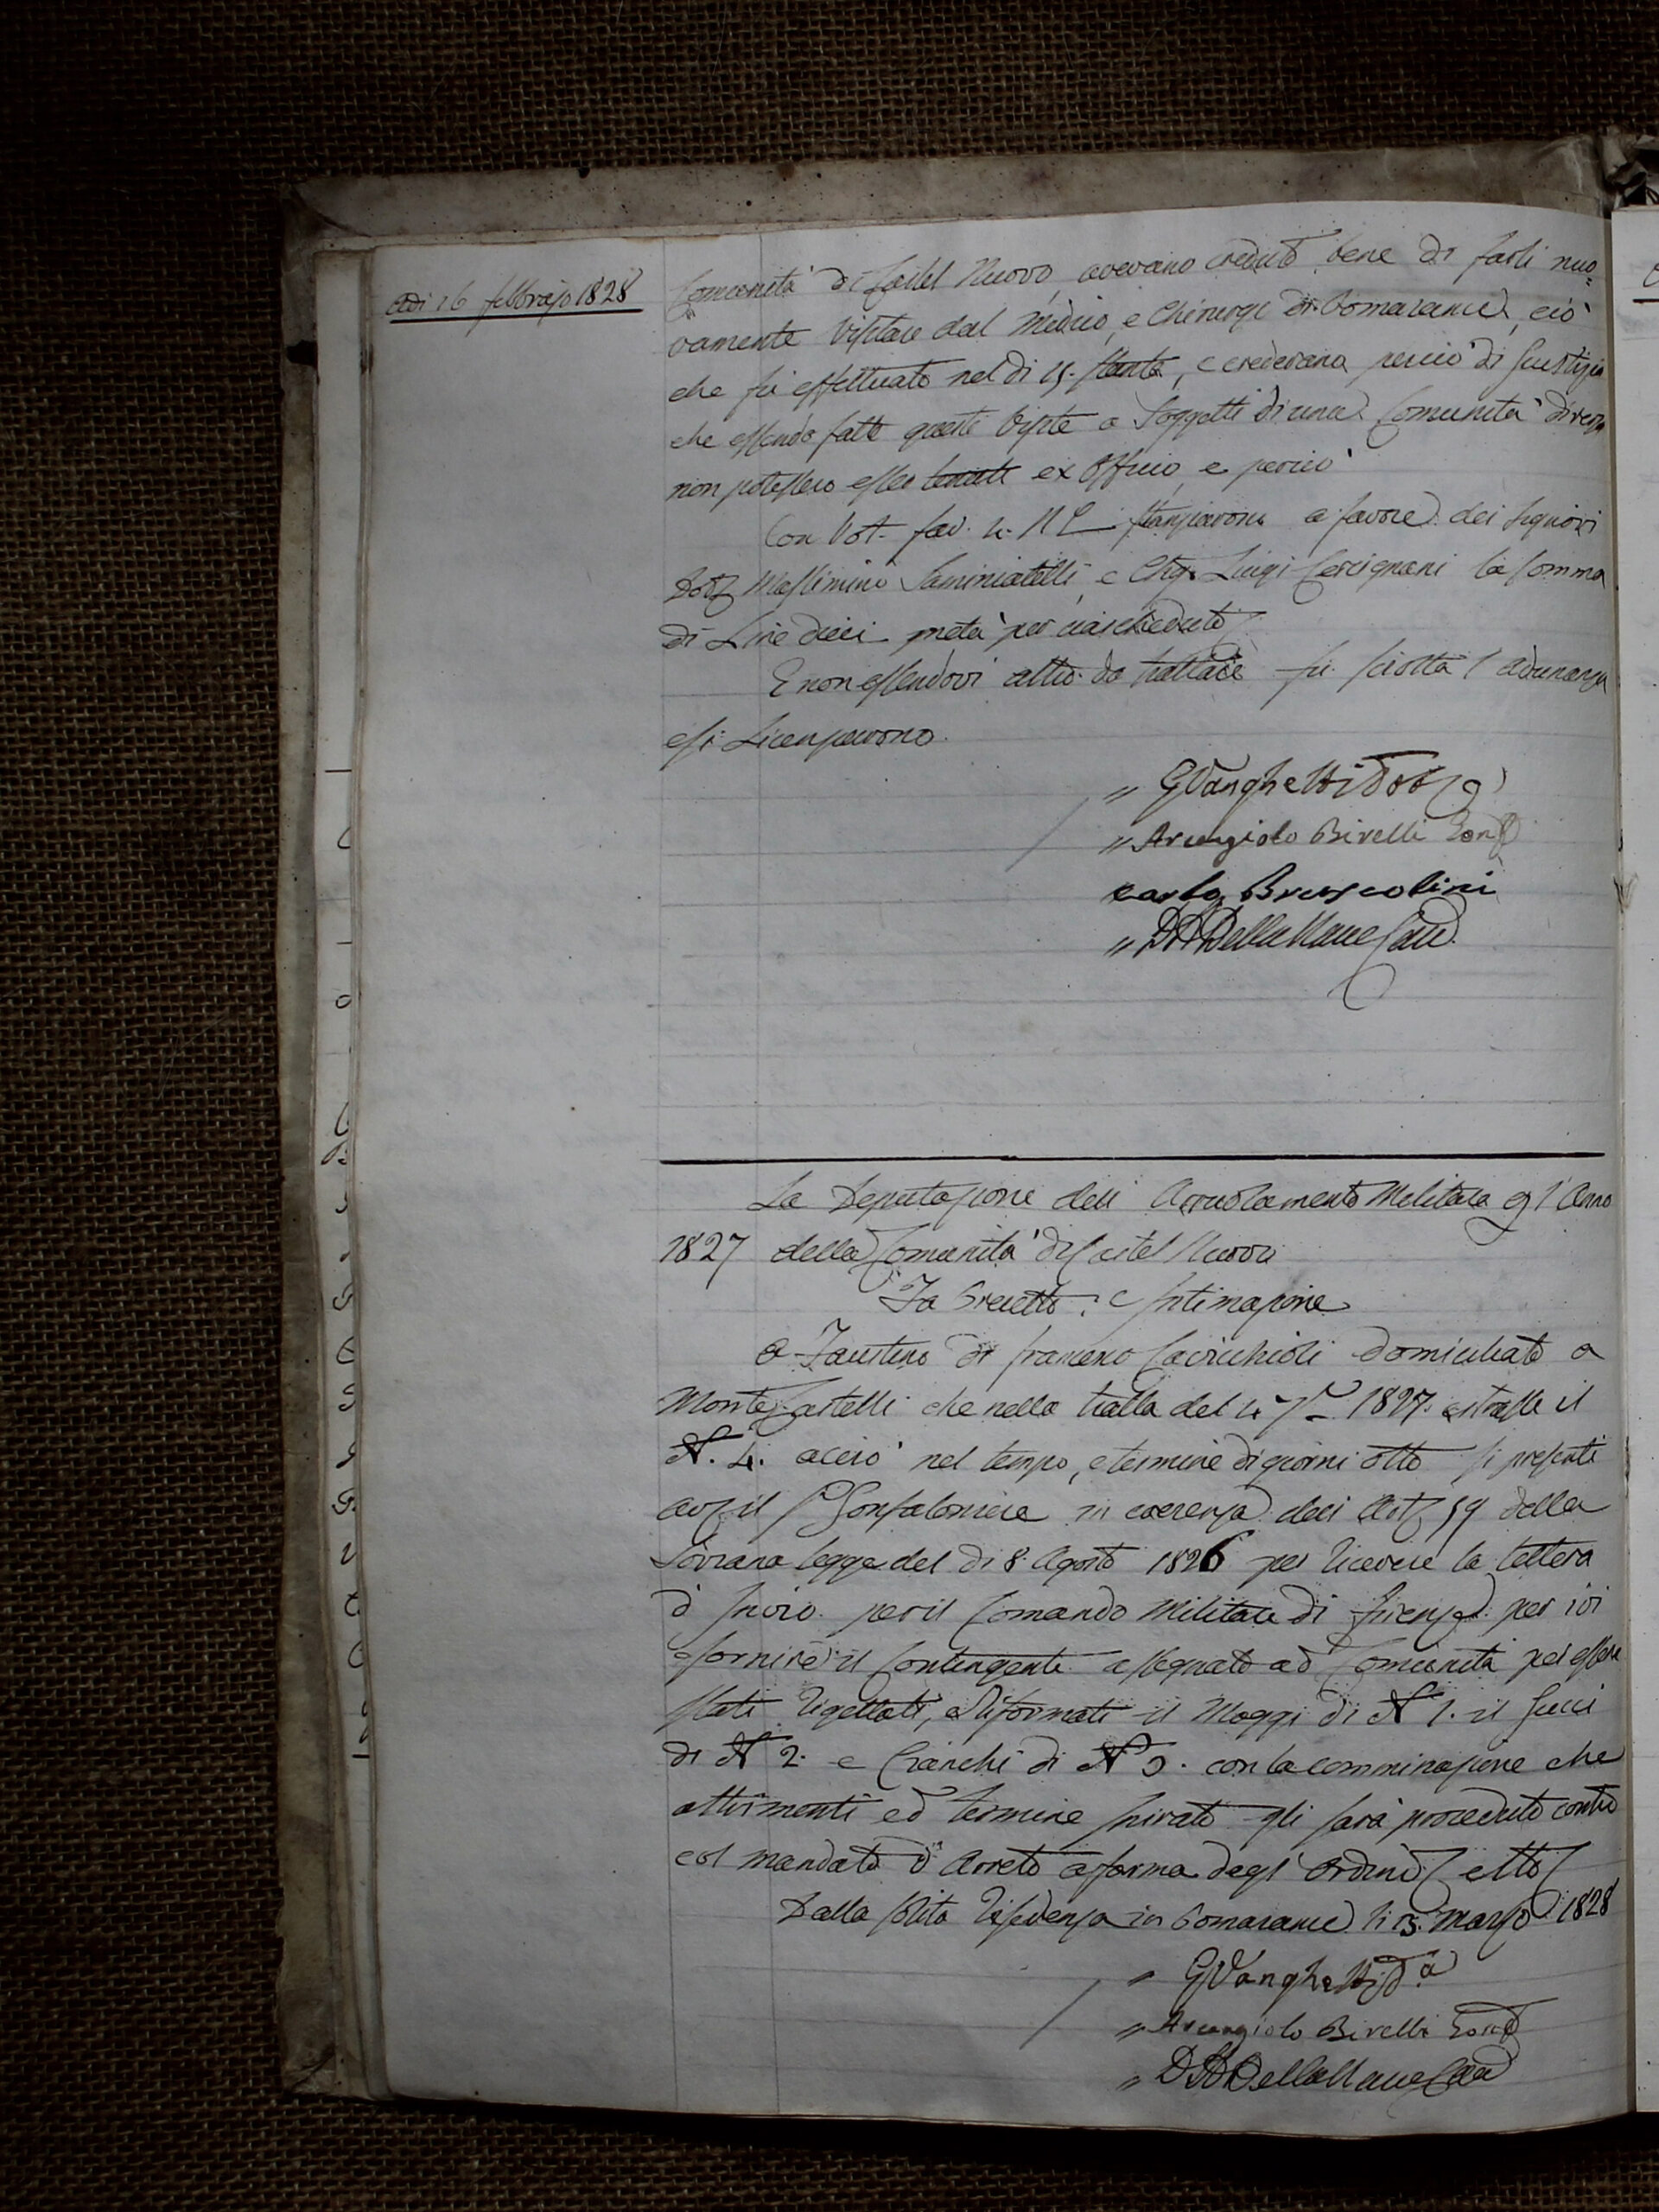 Adi 16 febbrajo 1828
Comunità di Castel Nuovo, avevano creduto bene di farli nuo=
vamente visitare dal Medico, e Chirurgo di Pomarance, ciò
che fù effettuato nel dì 15. stante, e credevano perciò di Giustizia
che essendo fatte queste visite a Soggetti di una Comunità diversa
non potessero esser tenuti ex Officio, e perciò
Con Vot. fav. 4. N C stanziarono a favore dei Signori
Dott Massimino Saminiatelli, e Luigi Cercignani la somma
di Lire dieci metà per ciascheduno
E non essendovi altro da trattare fu sciolta l adunanza
e si Licenziarono.
" G Vanghetti
" Arcangiolo Birelli Gonf
Carlo Bruscolini
" Della Nave Canc.
La Deputazione dell Arruolamento Militare p l' Anno
1827 della Comunità di Castel Nuovo
Fa Precetto, e Intimazione
A Faustino di Francesco Cavicchioli domiciliato a
Monte Castelli che nella tratta del 4 1827. estrasse il
N. 4. acciò nel tempo, e termine di giorni otto si presenti
av il S Gonfaloniere in coerenza dell Art 59 della
Sovrana Legge del dì 8. Agosto 1826 per ricevere la lettera
d Invio per il Comando Militare di Firenze per ivi
fornire il Contingente assegnato a d Comunità per essere
stati rigettati, e riformati il Moggi di N 1. il Gucci
di N 2. e Cianchi di N 3. con la comminazione che
altrimenti e d termine spirato gli sarà proceduto contro
col mandato d' Arresto a forma degl' Ordini
Dalla solita Residenza in Pomarance li 13. Marzo 1828
" G Vanghetti
" Arcangiolo Birelli Gonf
" Della Nave Canc